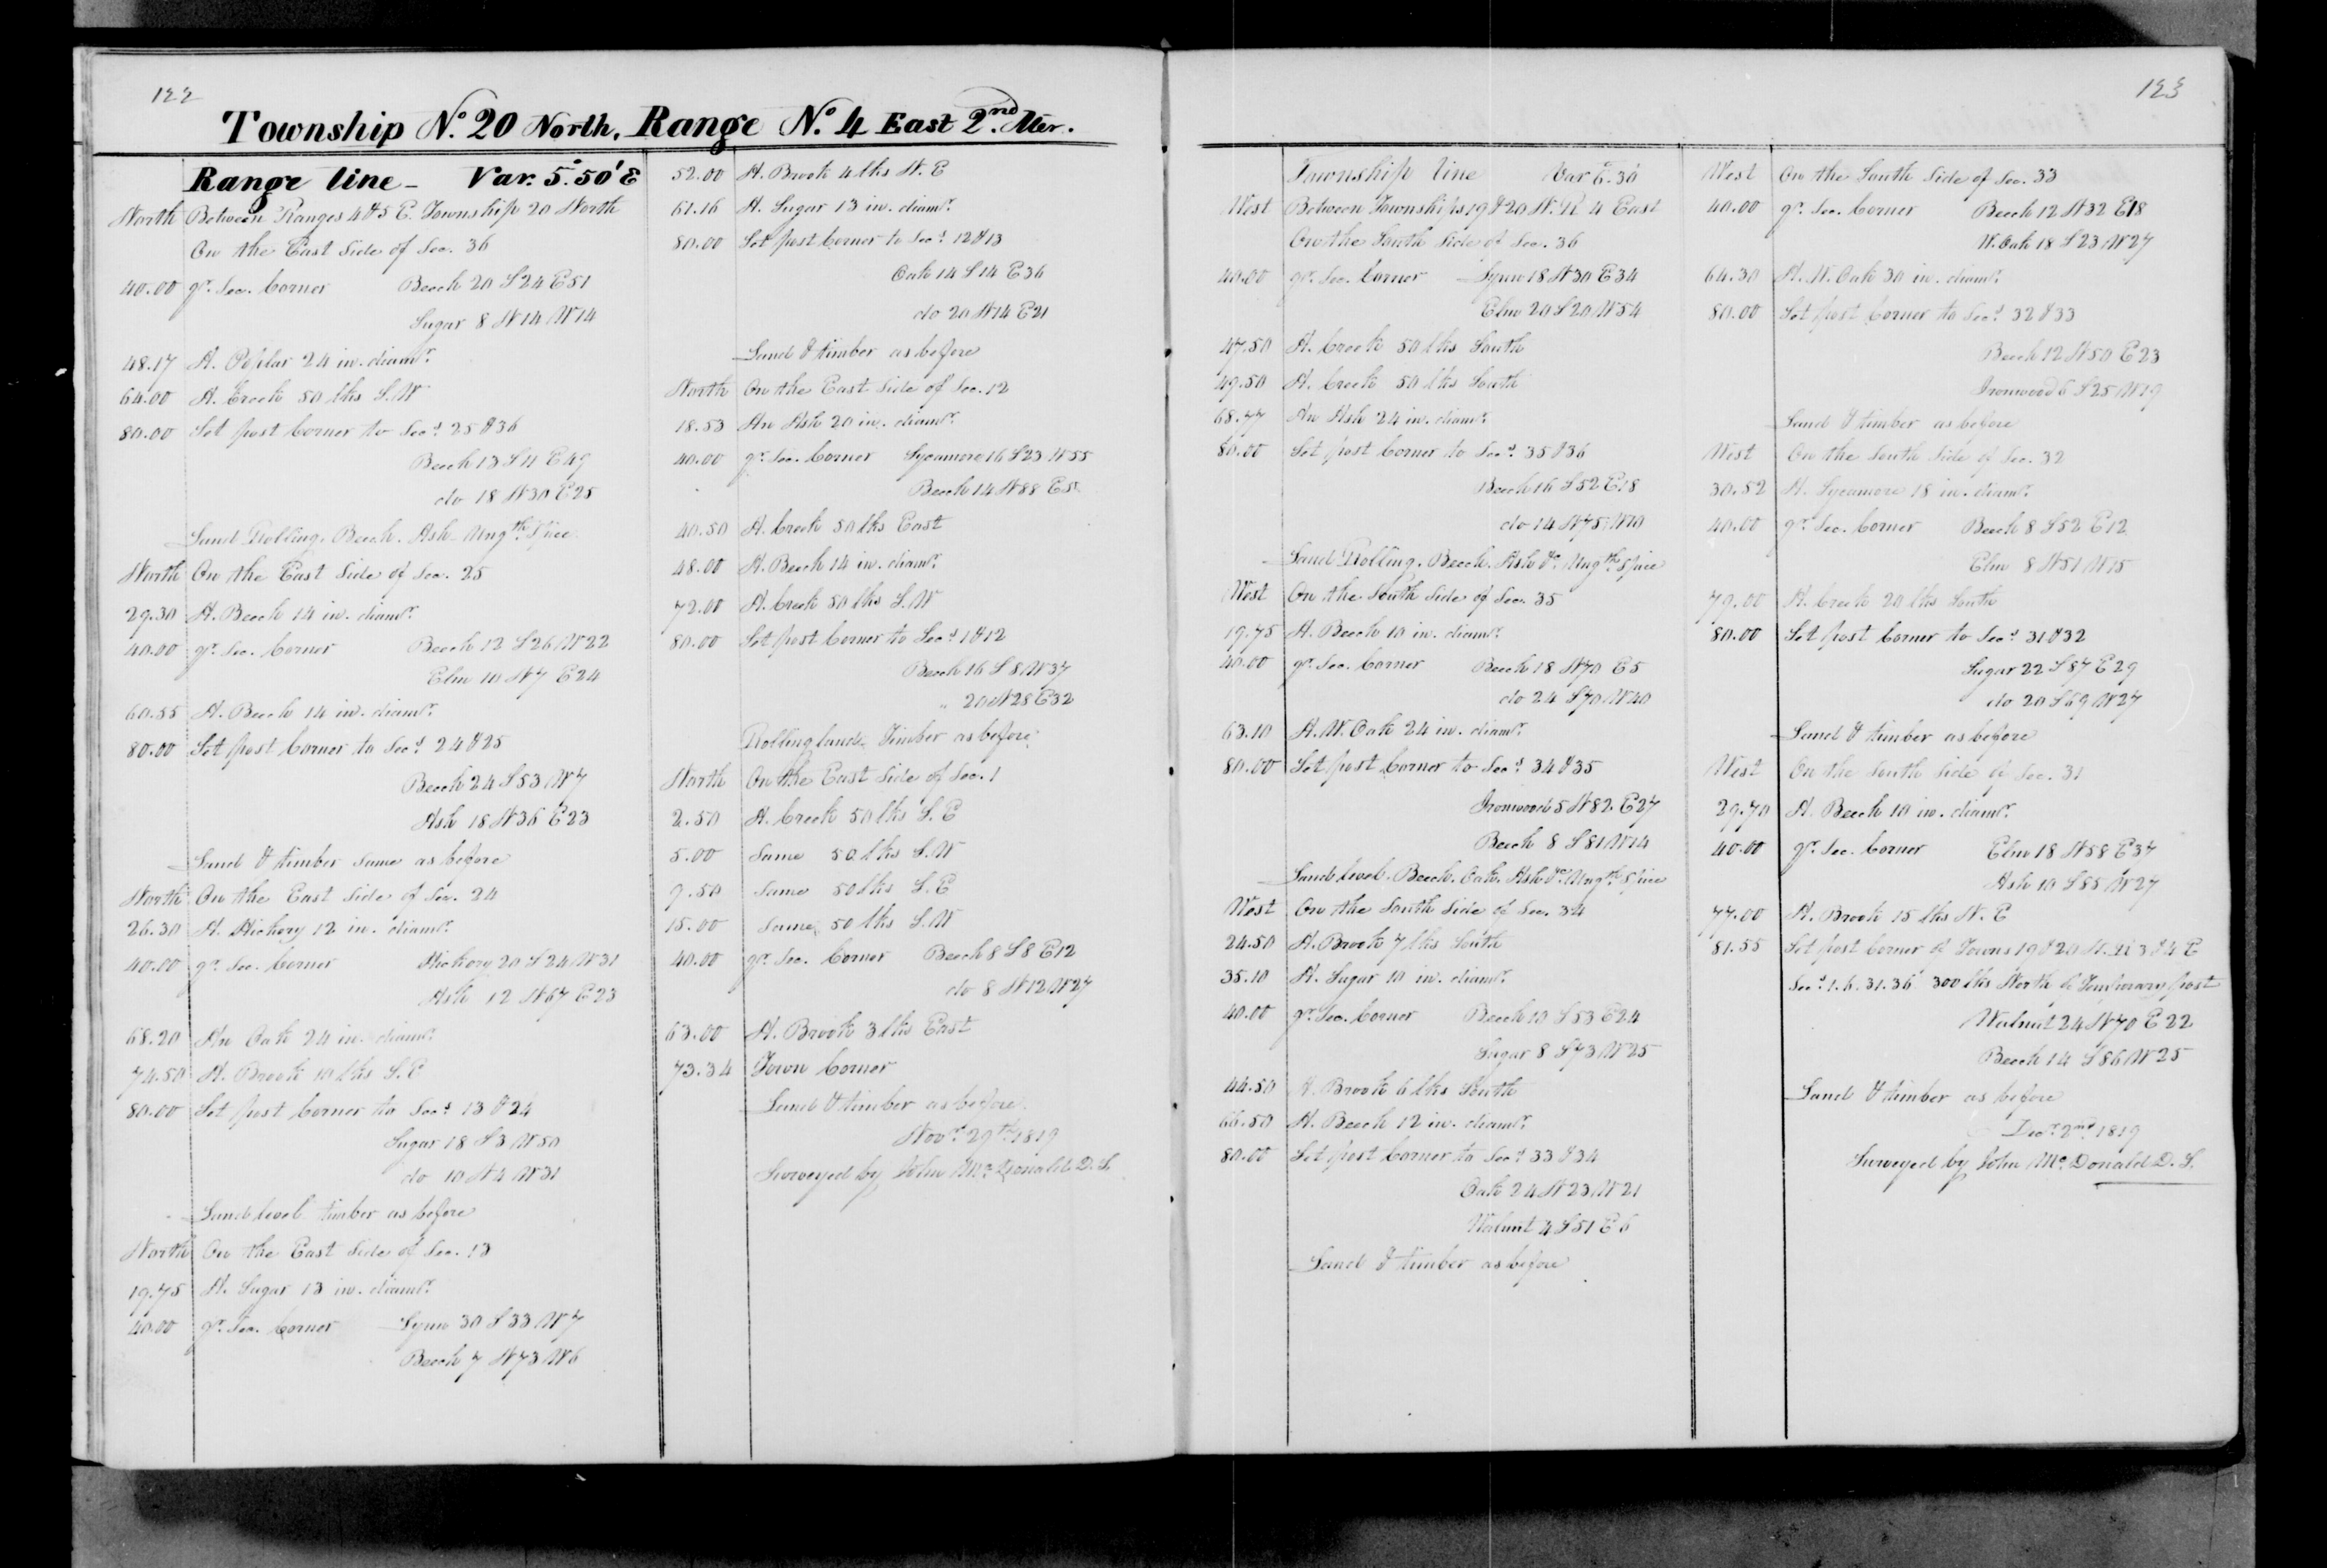 122
Township No. 20 North, Range No. 4 East 2nd Mer.
Range line - Var. 5°.50' E
North Between Ranges 4 & 5 E. Township 20 North
On the East Side of Sec. 36
40.00 qr. Sec. Corner Beech 20 S 24 E 51
Sugar 8 N 14 W 14
48.17 A. Poplar 24 in. diamr.
64.00 A. Creek 50 lks S.W
80.00 Set post Corner to Secs. 25 & 36
Beech 13 S 11 E 49
do 18 N 30 E 25
Land Rolling, Beech. Ash. Ungth. Spice
North On the East Side of Sec. 25
29.30 A. Beech 14 in. diamr.
40.00 qr. Sec. Corner Beech 12 S 26 W 22
Elm 10 N 7 E 24
60.55 A. Beech 14 in. diamr.
80.00 Set post Corner to Secs. 24 & 25
Beech 24 S 53 W 7
Ash 18 N 36 E 23
Land & timber same as before
North On the East Side of Sec. 24
26.30 A. Hickory 12 in. diamr.
40.00 qr. Sec. Corner Hickory 20 S 24 W 31
Ash 12 N 67 E 23
68.20 An Oak 24 in. diamr.
74.50 A. Brook 10 lks S.E
80.00 Set post Corner to Secs. 13 & 24
Sugar 18 S 3 W 50
do 10 N 4 W 31
Land level timber as before
North On the East Side of Sec. 13
19.75 A. Sugar 13 in. diamr.
40.00 qr. Sec. Corner Lynn 30 S 33 W 7
Beech 7 N 73 W 6
52.00 A. Brook 4 lks N.E
61.16 A. Sugar 13 in. diamr.
80.00 Set post Corner to Secs. 12 & 13
Oak 14 S 14 E 36
do 20 N 14 E 21
Land & timber as before
North On the East Side of Sec. 12
18.53 An Ash 20 in. diamr.
40.00 qr. Sec. Corner Sycamore 16 S 23 W 55
Beech 14 N 88 E 5
40.50 A. Creek 50 lks East
48.00 A. Beech 14 in. diamr.
72.00 A. Creek 50 lks S.W
80.00 Set post Corner to Secs. 1 & 12
Beech 16 S 8 W 37
" 20 N 28 E 32
Rolling land, Timber as before
North On the East Side of Sec. 1
2.50 A. Creek 50 lks S.E
5.00 Same 50 lks S.W
9.50 Same 50 lks S.E
15.00 Same 50 lks S.W
40.00 qr. Sec. Corner Beech 8 S 8 E 12
do 8 N 12 W 27
63.00 A. Brook 3 lks East
73.34 Town Corner
Land & timber as before
Novr. 29th 1819
Surveyed by John Mc. Donald D.S.
123
Township line Var 6°.30'
West Between Townships 19 & 20 N. R 4 East
On the South Side of Sec. 36
40.00 qr. Sec. Corner Lynn 18 N 30 E 34
Elm 20 S 20 W 54
47.50 A. Creek 50 lks South
49.50 A. Creek 50 lks South
68.77 An Ash 24 in. diamr.
80.00 Set post Corner to Secs. 35 & 36
Beech 16 S 52 E 18
do 14 N 75 W 10
Land Rolling, Beech, Ash &c. Ungth. Spice
West On the South Side of Sec. 35
19.75 A. Beech 10 in. diamr.
40.00 qr. Sec. Corner Beech 18 N 70 E 5
do 24 S 70 W 40
63.10 A. W. Oak 24 in. diamr.
80.00 Set post Corner to Secs. 34 & 35
Ironwood 5 N 82 E 27
Beech 8 S 81 W 14
Land level. Beech. Oak. Ash &c. Ungth. Spice
West On the South Side of Sec. 34
24.50 A. Brook 7 lks South
35.10 A. Sugar 10 in. diamr.
40.00 qr. Sec. Corner Beech 10 S 53 E 24
Sugar 8 S 73 W 25
44.50 A. Brook 6 lks South
66.50 A. Beech 12 in. diamr.
80.00 Set post Corner to Secs. 33 & 34
Oak 24 N 23 W 21
Walnut 4 S 51 E 6
Land & timber as before
West On the South Side of Sec. 33
40.00 qr. Sec. Corner Beech 12 N 32 E 18
W. Oak 18 S 23 W 27
64.30 A. W. Oak 30 in. diamr.
80.00 Set post Corner to Secs. 32 & 33
Beech 12 N 50 E 23
Ironwood 6 S 25 W 19
Land & timber as before
West On the South Side of Sec. 32
30.52 A. Sycamore 18 in. diamr.
40.00 qr. Sec. Corner Beech 8 S 52 E 12
Elm 8 N 51 W 15
79.00 A. Creek 20 lks South
80.00 Set post Corner to Secs. 31 & 32
Sugar 22 S 87 E 29
do 20 S 69 W 27
Land & timber as before
West On the South Side of Sec. 31
29.70 A. Beech 10 in. diamr.
40.00 qr. Sec. Corner Elm 18 N 58 E 37
Ash 10 S 85 W 27
77.00 A. Brook 15 lks N.E
81.55 Set post Corner of Towns 19 & 20 N. R 3 & 4 E
Secs. 1. 6. 31. 36 300 lks North of Temporary post
Walnut 24 N 70 E 22
Beech 14 S 86 W 25
Land & timber as before
Decr. 2nd 1819
Surveyed by John Mc. Donald D.S.